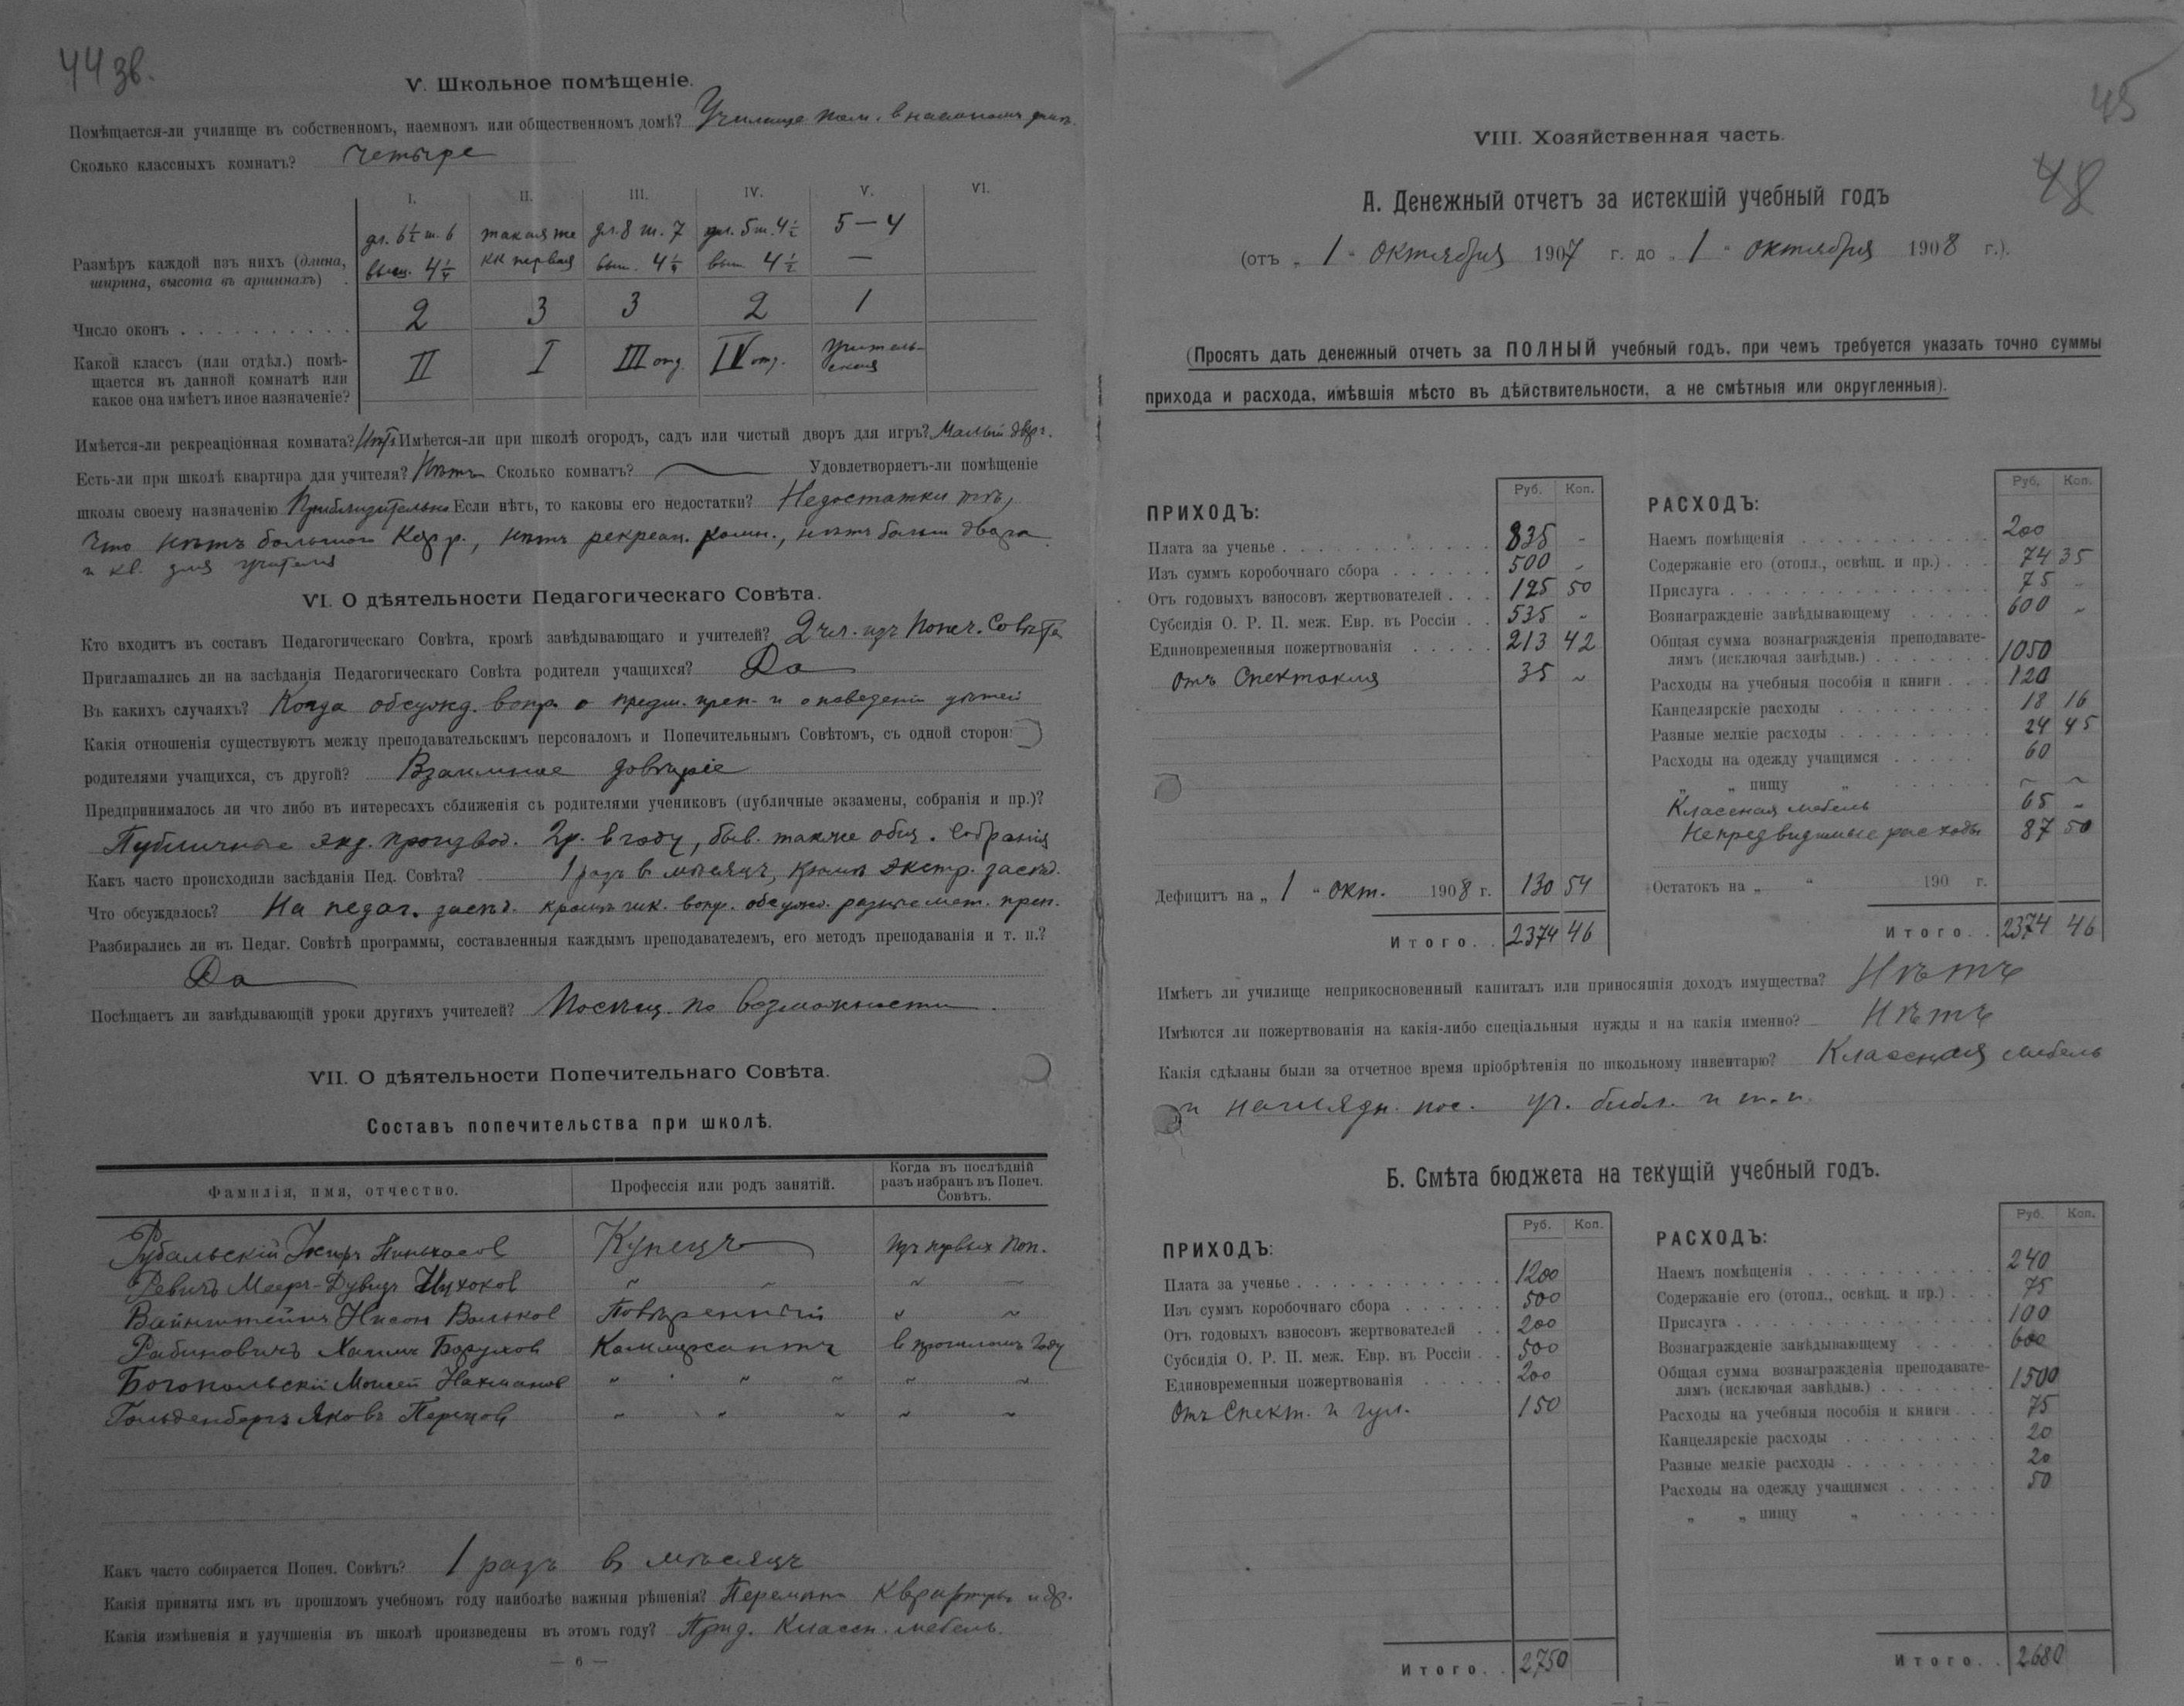 44 зв.
V. Школьное помѣщеніе.
Помѣщается-ли училище въ собственномъ, наемномъ или общественномъ домѣ? Училище пом. в наемномъ домѣ.
Сколько классныхъ комнатъ? Четыре
I. II. III. IV. V. VI.
Размѣръ каждой изъ нихъ (длина, ширина, высота въ аршинахъ)
дл. 6½ ш. 6 такая же дл. 8 ш. 7 дл. 5 ш. 4½ 5 — 4
выш. 4¼ кк первая выш. 4¼ выш 4½ —
Число оконъ 2 3 3 2 1
Какой классъ (или отдѣл.) помѣ-
щается въ данной комнатѣ или
какое она имѣетъ иное назначеніе?
II I III отд. IV отд. Учитель-
ская
Имѣется-ли рекреаціонная комната? Нѣтъ Имѣется-ли при школѣ огородъ, садъ или чистый дворъ для игръ? Малый двор.
Есть-ли при школѣ квартира для учителя? Нѣтъ Сколько комнатъ? — Удовлетворяетъ-ли помѣщеніе
школы своему назначенію Приблизительно Если нѣтъ, то каковы его недостатки? Недостатки тѣ,
что нѣтъ большого кор., нѣтъ рекреац. комн., нѣтъ больш двора
и кв. для учителя
VI. О дѣятельности Педагогическаго Совѣта.
Кто входитъ въ составъ Педагогическаго Совѣта, кромѣ завѣдывающаго и учителей? 2 чл. изъ Попеч. Совѣта
Приглашались ли на засѣданія Педагогическаго Совѣта родители учащихся? Да
Въ какихъ случаяхъ? Когда обсужд. вопр. о предм. преп. и о поведеніи дѣтей
Какія отношенія существуютъ между преподавательскимъ персоналомъ и Попечительнымъ Совѣтомъ, съ одной сторон
родителями учащихся, съ другой? Взаимное довѣріе
Предпринималось ли что либо въ интересахъ сближенія съ родителями учениковъ (публичные экзамены, собранія и пр.)?
Публичные экз. производ. 2 р. в году, быв. также общ. собранія
Какъ часто происходили засѣданія Пед. Совѣта? 1 разъ в мѣсяцъ, кромѣ экстр. засѣд.
Что обсуждалось? На педаг. засѣд. вопр. обсужд. мет. преп.
Разбирались ли въ Педаг. Совѣтѣ программы, составленныя каждымъ преподавателемъ, его методъ преподаванія и т. п.?
Да
Посѣщаетъ ли завѣдывающій уроки другихъ учителей? Посѣщ. по возможности.
VII. О дѣятельности Попечительнаго Совѣта.
Составъ попечительства при школѣ.
Фамилія, имя, отчество. Профессія или родъ занятій. Когда въ послѣдній разъ избранъ въ Попеч. Совѣтъ.
Рубальскій Пиньхасов Купецъ Изъ первых Поп.
Ревичъ Меер-Дувидъ ~ ~ ~ ~
Вайнштейнъ Нисон Вольков Повѣренный " ~
Рабиновичъ Хаимъ Борухов Коммерсантъ в прошломъ году
Богопольскій Моисей Нахманов " " ~ ~ ~
Гольденбергъ Яковъ Перецов " " ~ ~ ~
Какъ часто собирается Попеч. Совѣтъ? 1 разъ въ мѣсяцъ
Какія приняты имъ въ прошломъ учебномъ году наиболѣе важныя рѣшенія? Перемѣна квартиры и др.
Какія измѣненія и улучшенія въ школѣ произведены въ этомъ году? Пріо. классн. мебель.
— 6 —
45
48
VIII. Хозяйственная часть.
А. Денежный отчетъ за истекшій учебный годъ
(отъ „ 1 " октября 1907 г. до „ 1 " октября 1908 г.).
(Просятъ дать денежный отчетъ за ПОЛНЫЙ учебный годъ, при чемъ требуется указать точно суммы
прихода и расхода, имѣвшія мѣсто въ дѣйствительности, а не смѣтныя или округленныя).
ПРИХОДЪ: Руб. Коп.
Плата за ученье 835 -
Изъ суммъ коробочнаго сбора 500 -
Отъ годовыхъ взносовъ жертвователей 125 50
Субсидія О. Р. П. меж. Евр. въ Россіи 535 -
Единовременныя пожертвованія 213 42
Отъ Спектакля 35 ~
Дефицитъ на „ 1 " окт. 1908 г. 130 54
Итого 2374 46
РАСХОДЪ: Руб. Коп.
Наемъ помѣщенія 200
Содержаніе его (отопл., освѣщ. и пр.) 74 35
Прислуга 75 -
Вознагражденіе завѣдывающему 600 -
Общая сумма вознагражденія преподавате-
лямъ (исключая завѣдыв.) 1050
Расходы на учебныя пособія и книги 120
Канцелярскіе расходы 18 16
Разные мелкіе расходы 24 45
Расходы на одежду учащимся 60
„ „ пищу „ ~ ~
Классная мебель 65 -
Непредвидимые расходы 87 50
Остатокъ на „ " 190 г.
Итого 2374 46
Имѣетъ ли училище неприкосновенный капиталъ или приносящія доходъ имущества? Нѣтъ
Имѣются ли пожертвованія на какія-либо спеціальныя нужды и на какія именно? Нѣтъ
Какія сдѣланы были за отчетное время пріобрѣтенія по школьному инвентарю? Классная мебель
и наглядн. пос. уч. библ. и т. п.
Б. Смѣта бюджета на текущій учебный годъ.
ПРИХОДЪ: Руб. Коп.
Плата за ученье 1200
Изъ суммъ коробочнаго сбора 500
Отъ годовыхъ взносовъ жертвователей 200
Субсидія О. Р. П. меж. Евр. въ Россіи 500
Единовременныя пожертвованія 200
Отъ Спект. и гул. 150
Итого 2750
РАСХОДЪ: Руб. Коп.
Наемъ помѣщенія 240
Содержаніе его (отопл., освѣщ. и пр.) 75
Прислуга 100
Вознагражденіе завѣдывающему 600
Общая сумма вознагражденія преподавате-
лямъ (исключая завѣдыв.) 1500
Расходы на учебныя пособія и книги 75
Канцелярскіе расходы 20
Разные мелкіе расходы 20
Расходы на одежду учащимся 50
„ „ пищу „
Итого 2680
— 7 —